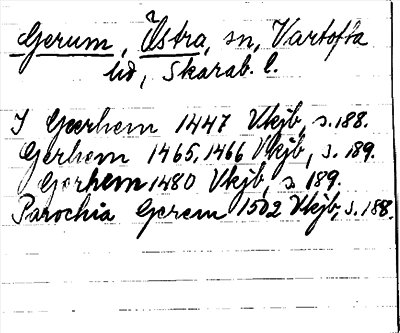 Gerum, Östra, sn, Vartofta
hd, Skarab. l.
I Geerhem 1447 Vkjb, s. 188.
Gerhem 1465, 1466 Vkjb, s. 189.
Gerhem 1480 Vkjb, s. 189.
Parochia Gerem 1502 Vkjb, s. 188.